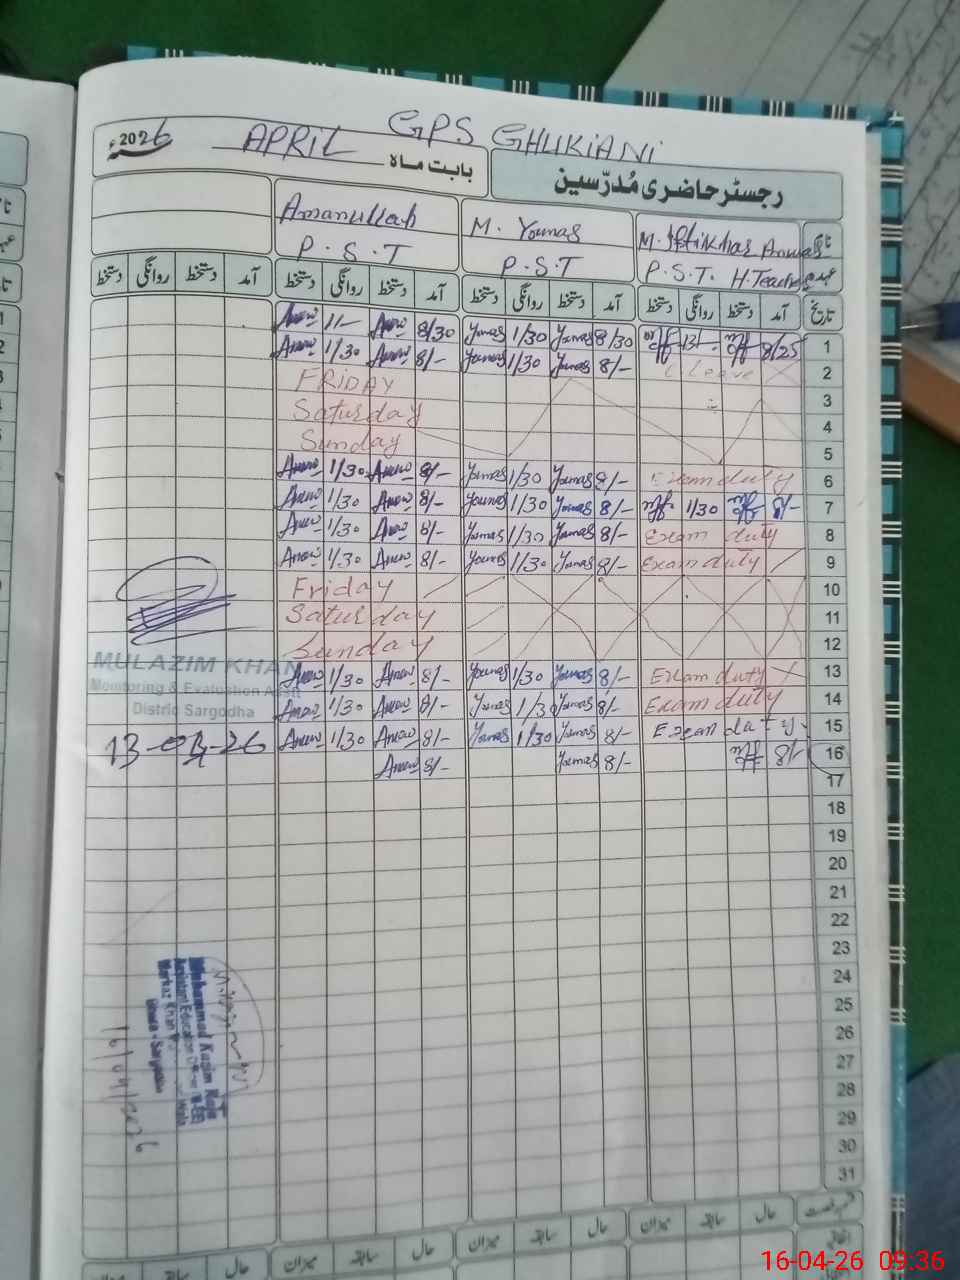 GPS GHUKIANI
2026ء APRIL بابت ماہ
رجسٹر حاضری مُدرّسین
Amanullah M. Younas M. Iftikhar Anwar نام
P.S.T P.S.T P.S.T. H.Teacher عہدہ
دستخط روانگی دستخط آمد دستخط روانگی دستخط آمد دستخط روانگی دستخط آمد دستخط روانگی دستخط آمد تاریخ
11/- 8/30 Younas 1/30 Younas 8/30 8/25 1
1/30 8/- Younas 1/30 Younas 8/- Leave 2
FRIDAY 3
Saturday 4
Sunday 5
1/30 8/- Younas 1/30 Younas 8/- Exam duty 6
1/30 8/- Younas 1/30 Younas 8/- 1/30 8/- 7
1/30 8/- Younas 1/30 Younas 8/- Exam duty 8
1/30 8/- Younas 1/30 Younas 8/- Exam duty 9
Friday 10
Saturday 11
Sunday 12
1/30 8/- Younas 1/30 Younas 8/- Exam duty 13
1/30 8/- Younas 1/30 Younas 8/- Exam duty 14
1/30 8/- Younas 1/30 Younas 8/- Exam duty 15
8/- Younas 8/- 8/- 16
17
18
19
20
21
22
23
24
25
26
27
28
29
30
31
MULAZIM KHAN
Monitoring & Evaluation Asstt
Distric Sargodha
13-04-26
Muhammad Kasim Raza
Assistant Education Officer
Markaz Khan
Sargodha
16/04/2026
میزان سابقہ حال میزان سابقہ حال میزان سابقہ حال
اتفاقی
میزان سابقہ حال میزان سابقہ حال
16-04-26 09:36